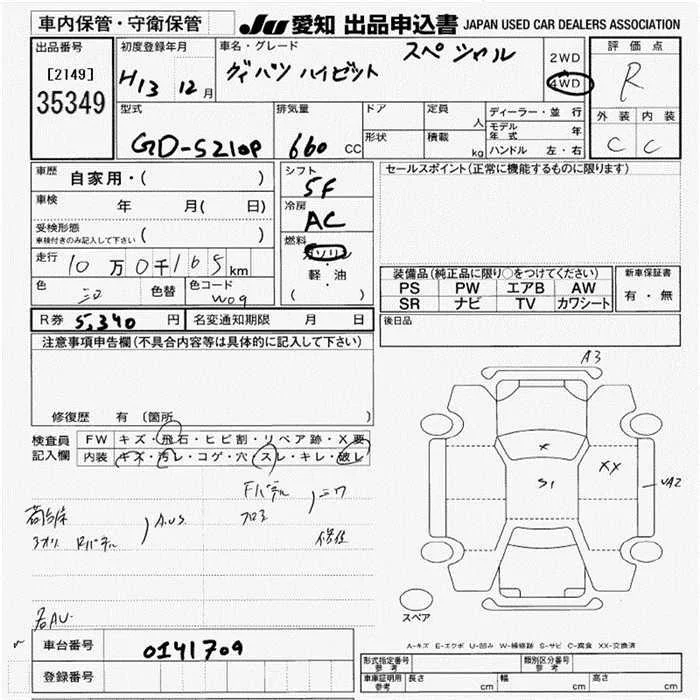 車内保管・守衛保管
JU 愛知 出品申込書 JAPAN USED CAR DEALERS ASSOCIATION
出品番号
[2149]
35349
初度登録年月
H13 12月
車名・グレード
スペシャル
ダイハツ ハイゼット
2WD
4WD
評価点
R
外装 内装
C C
型式
GD-S210P
排気量
660 CC
ドア
形状
定員 人
積載 kg
ディーラー・並行
モデル年式 年
ハンドル 左・右
車歴 自家用・( )
車検 年 月( 日)
受検形態
車検付きのみ記入して下さい ( )
走行 10万0千165km
色
色替
色コード
W09
シフト
5F
冷房
AC
燃料
ガソリン
軽・油
( )
セールスポイント(正常に機能するものに限ります)
装備品(純正品に限り○をつけてください)
PS PW エアB AW
SR ナビ TV カワシート
新車保証書
有・無
R券 5,340 円
名変通知期限 月 日
後日品
注意事項申告欄(不具合内容等は具体的に記入して下さい)
修復歴 有 (箇所
検査員
記入欄
FW キズ・飛石・ヒビ割・リペア跡・X要
内装 キズ・汚レ・コゲ・穴・スレ・キレ・破レ
A3
X
S1
XX
UA2
スペア
A.U.S.
車台番号 0141709
登録番号
A-キズ E-エクボ U-凹み W-補修跡 S-サビ C-腐食 XX-交換済
形式指定番号
参考
類別区分番号
参考
車庫証明用
参考
長さ cm 幅 cm 高さ cm